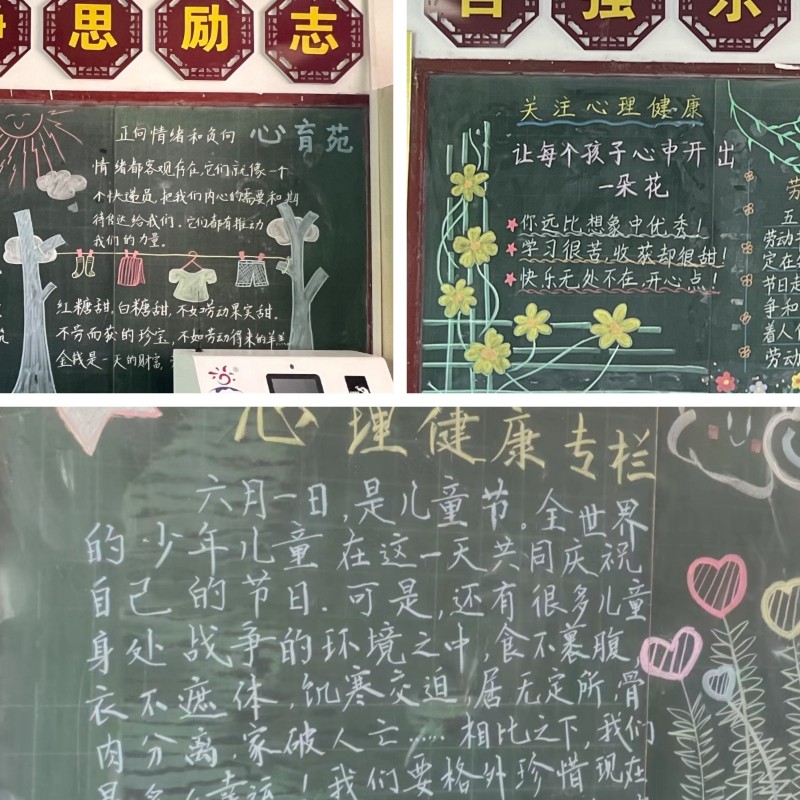 思励志
正向情绪和负向
心育苑
情绪都客观存在,它们就像一个
个快递员,把我们内心的需要和期
待传达给我们.它们都有推动
我们的力量.
红糖甜,白糖甜,不如劳动果实甜.
不劳而获的珍宝,不如劳动得来的羊羔
金钱是一天的财富,
自强乐
关注心理健康
让每个孩子心中开出
一朵花
你远比想象中优秀!
学习很苦,收获却很甜!
快乐无处不在,开心点!
劳
五
劳动
定在
节日起
争和
着人们
劳动
心理健康专栏
六月一日,是儿童节。全世界
的少年儿童在这一天共同庆祝
自己的节日.可是,还有很多儿童
身处战争的环境之中,食不裹腹,
衣不遮体,饥寒交迫,居无定所,骨
肉分离,家破人亡……相比之下,我们
是多么幸运!我们要格外珍惜现在